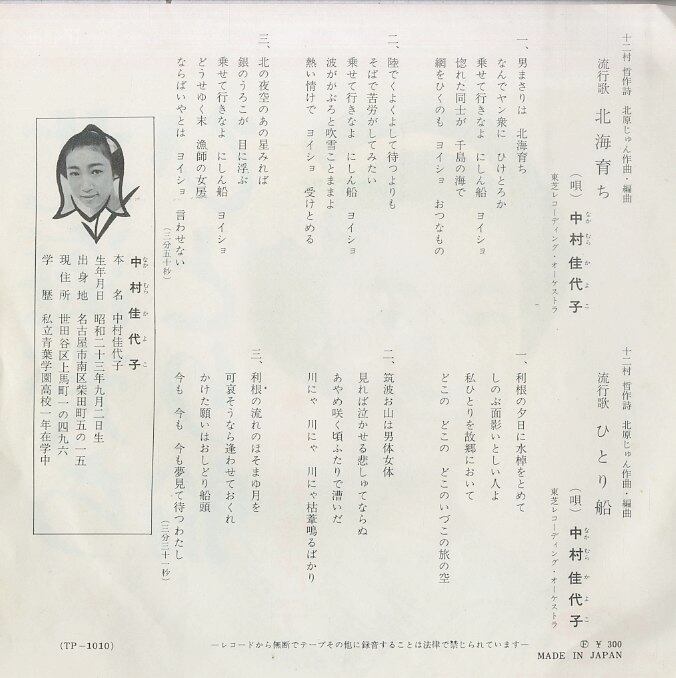 十二村 哲作詩 北原じゅん作曲・編曲
流行歌 北海育ち
(唄) 中村佳代子
なか むら か よ こ
東芝レコーディング・オーケストラ
一、男まさりは 北海育ち
なんでヤン衆に ひけとろか
乗せて行きなよ にしん船 ヨイショ
惚れた同士が 千島の海で
網をひくのも ヨイショ おつなもの
二、陸でくよくよして待つよりも
そばで苦労がしてみたい
乗せて行きなよ にしん船 ヨイショ
波がかぶろと吹雪ことままよ
熱い情けで ヨイショ 受けとめる
三、北の夜空のあの星みれば
銀のうろこが 目に浮ぶ
乗せて行きなよ にしん船 ヨイショ
どうせゆく末 漁師の女房
ならばいやとは ヨイショ 言わせない
(三分五十秒)
十二村 哲作詩 北原じゅん作曲・編曲
流行歌 ひとり船
(唄) 中村佳代子
なか むら か よ こ
東芝レコーディング・オーケストラ
一、利根の夕日に水棹をとめて
しのぶ面影いとしい人よ
私ひとりを故郷において
どこの どこの どこのいづこの旅の空
二、筑波お山は男体女体
見れば泣かせる悲しゅてならぬ
あやめ咲く頃ふたりで漕いだ
川にゃ 川にゃ 川にゃ枯葦鳴るばかり
三、利根の流れのほそまゆ月を
可哀そうなら逢わせておくれ
かけた願いはおしどり船頭
今も 今も 今も夢見て待つわたし
(三分三十一秒)
中村佳代子
なか むら か よ こ
本名 中村佳代子
生年月日 昭和二十三年九月二日生
出身地 名古屋市南区柴田町五の一五
現住所 世田谷区上馬町一の四九六
学歴 私立青葉学園高校一年在学中
(TP-1010)
―レコードから無断でテープその他に録音することは法律で禁じられています―
Ⓟ ¥300
MADE IN JAPAN